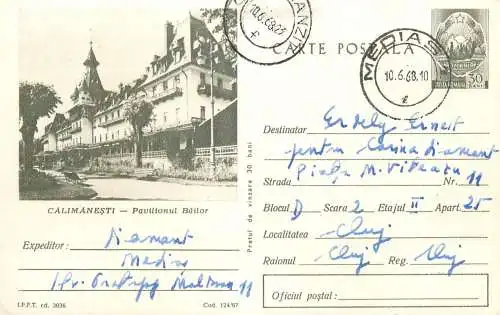 10.6.68.21
CARTE POSTALĂ
MEDIAȘ
10.6.68.10
30
CĂLIMĂNEȘTI — Pavilionul Băilor
Prețul de vînzare 30 bani
Destinatar Erdely Ernest
pentru Corina Diamant
Piața M. Viteazu
Strada Nr. 11
Blocul D Scara 2 Etajul III Apart. 25
Localitatea Cluj
Raionul Cluj Reg. Cluj
Oficiul poștal:
Expeditor: Diamant
Mediaș
11
I.P.P.T. cd. 3036
Cod. 124/67